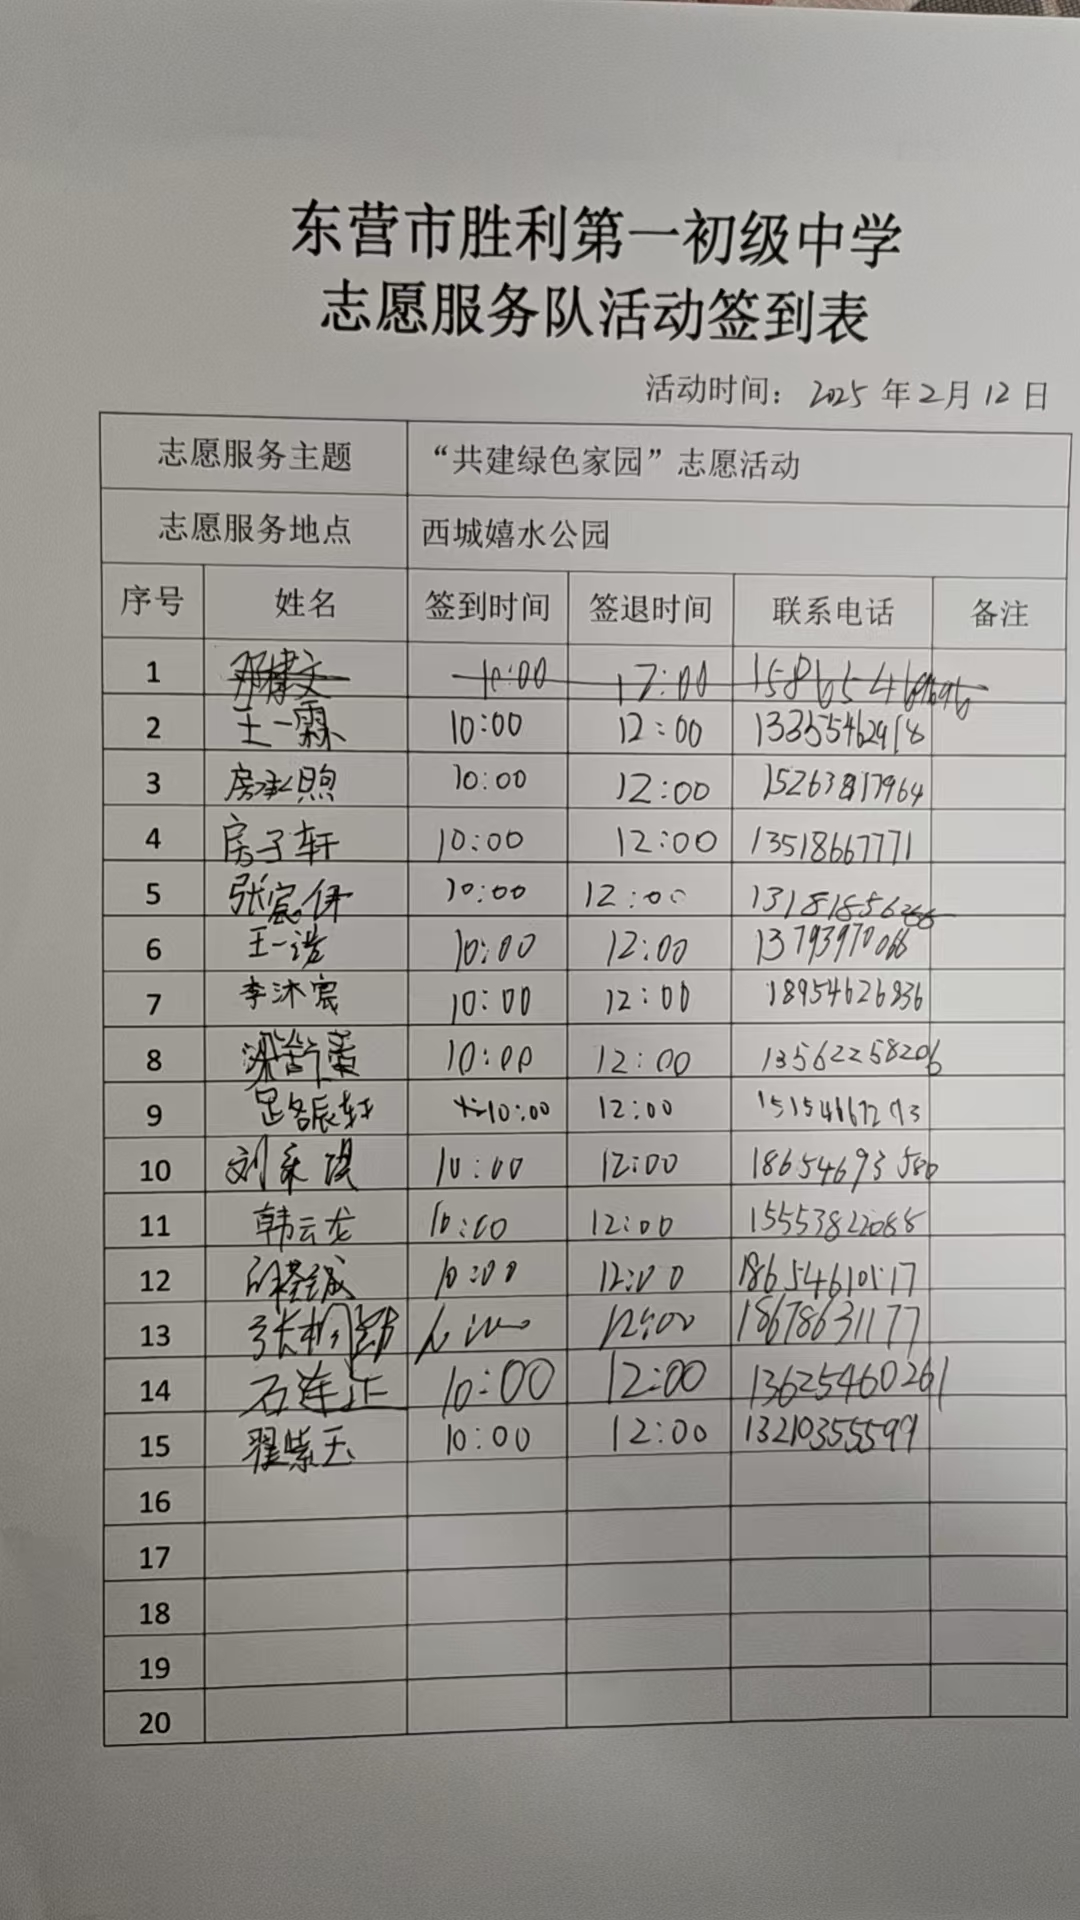 东营市胜利第一初级中学
志愿服务队活动签到表
活动时间：2025 年 2 月 12 日
志愿服务主题 “共建绿色家园”志愿活动
志愿服务地点 西城嬉水公园
序号 姓名 签到时间 签退时间 联系电话 备注
1 10:00 12:00
2 王一霖 10:00 12:00 13355462918
3 房承煦 10:00 12:00
4 房子轩 10:00 12:00 13518667771
5 张宸伊 10:00 12:00
6 王一诺 10:00 12:00 13793970066
7 李沐宸 10:00 12:00 18954626836
8 10:00 12:00 13562258206
9 10:00 12:00
10 10:00 12:00 18654693580
11 韩云龙 10:00 12:00 15553822088
12 10:00 12:00
13 12:00 18678631177
14 石连正 10:00 12:00 13625460261
15 翟紫玉 10:00 12:00 13210355599
16
17
18
19
20